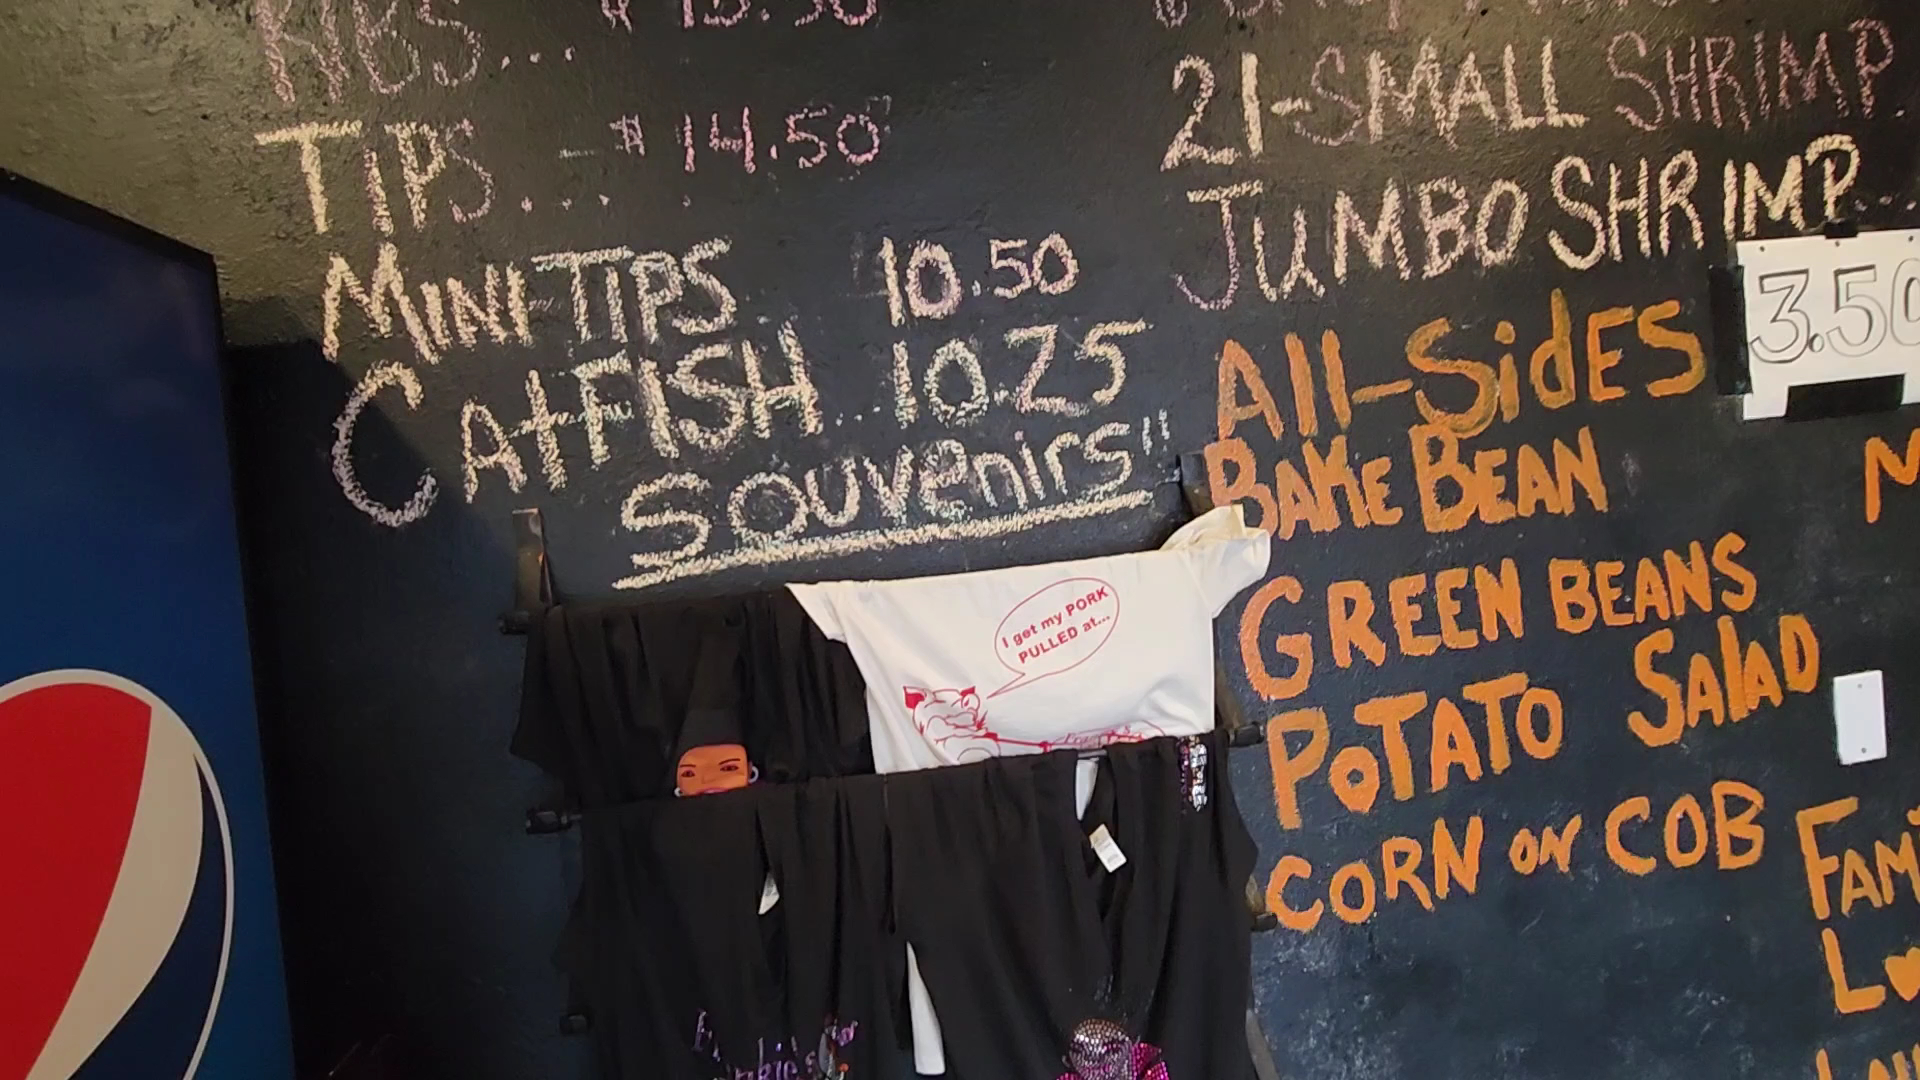 RIBS... $ 13.50
TIPS.... $ 14.50
MINI-TIPS 10.50
CATFISH.. 10.25
Souvenirs"
21-SMALL SHRIMP.
JUMBO SHRIMP...
All-SidES 3.50
BAKE BEAN
GREEN BEANS
POTATO SAlAD
CORN ON COB
I get my PORK
PULLED at...